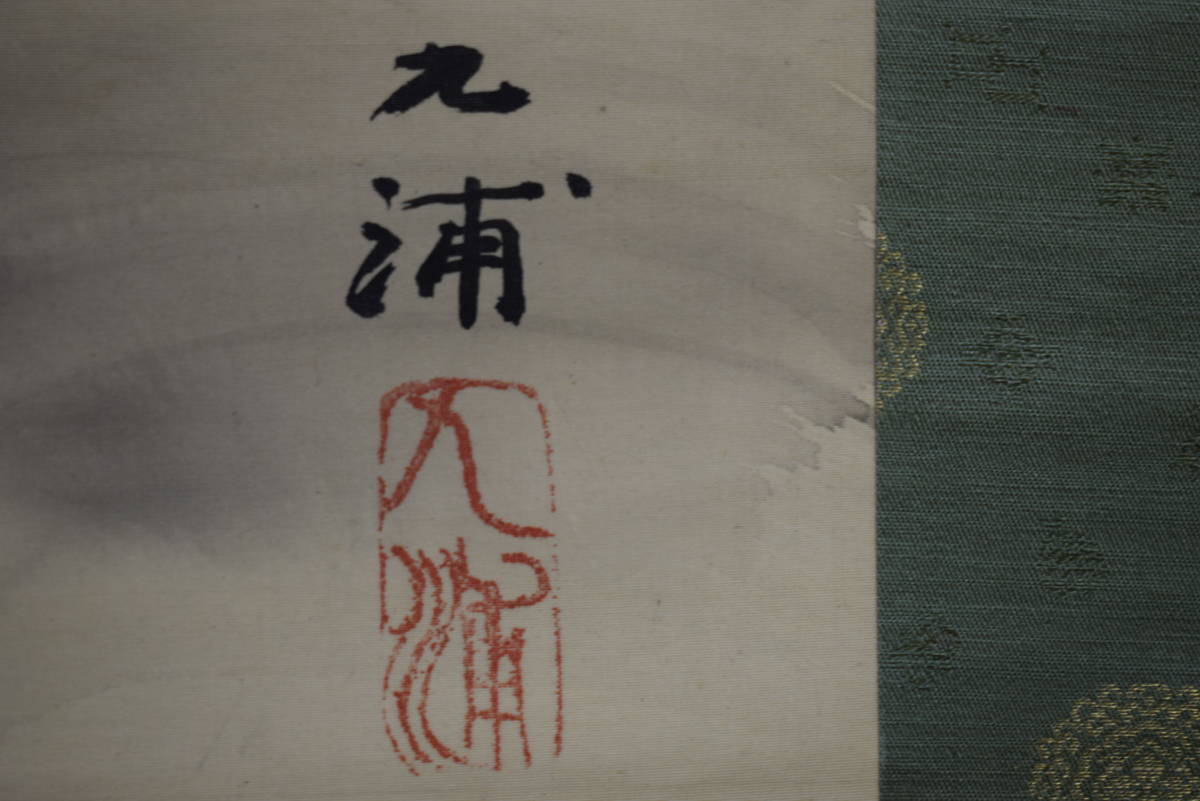 九
浦
九浦